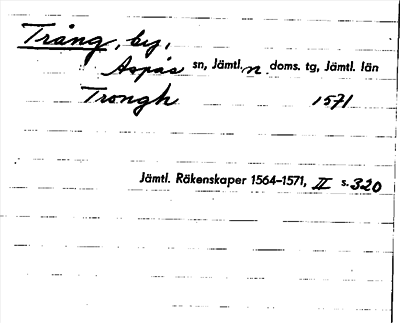 Trång, by,
Aspås sn, Jämtl. n. doms. tg, Jämtl. län
Trongh 1571
Jämtl. Räkenskaper 1564–1571, II s. 320